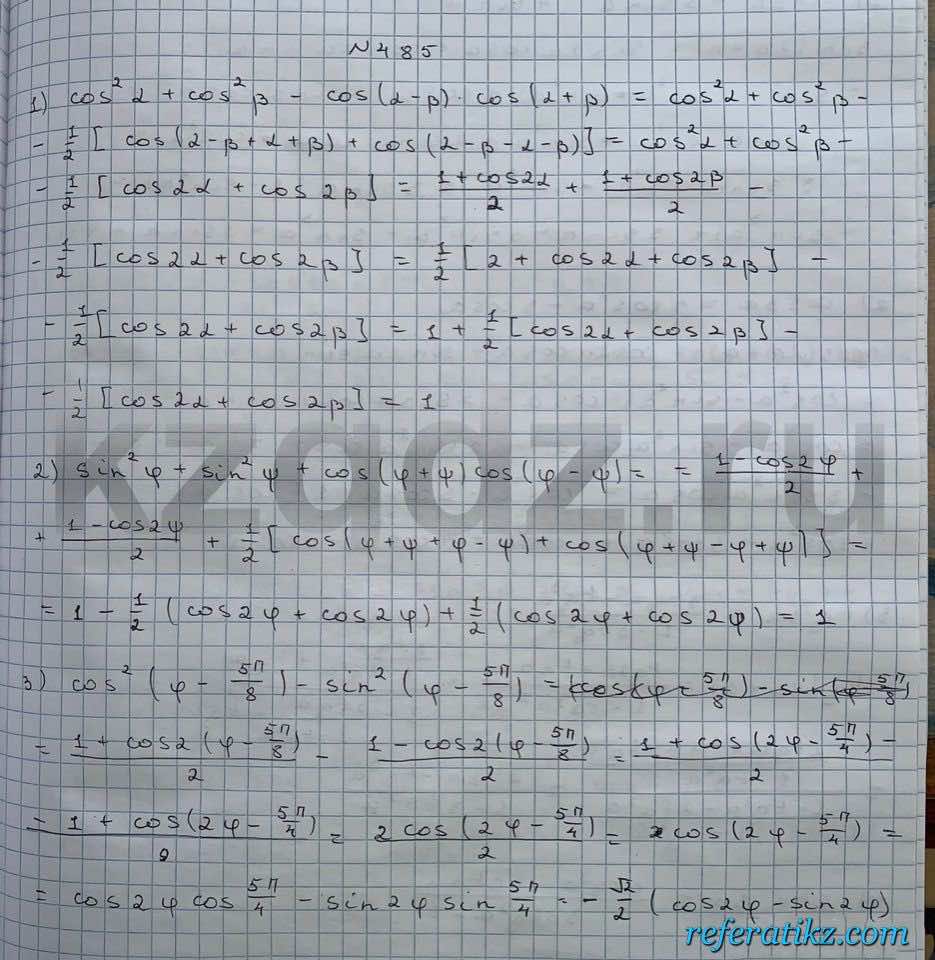 N485
1) cos²α + cos²β - cos(α-β)·cos(α+β) = cos²α + cos²β -
- 1/2 [ cos(α-β+α+β) + cos(α-β-α-β)] = cos²α + cos²β -
- 1/2 [cos2α + cos2β] = (1+cos2α)/2 + (1+cos2β)/2 -
- 1/2 [cos2α + cos2β] = 1/2 [2 + cos2α + cos2β] -
- 1/2 [cos2α + cos2β] = 1 + 1/2 [cos2α + cos2β] -
- 1/2 [cos2α + cos2β] = 1
2) sin²φ + sin²ψ + cos(φ+ψ)cos(φ-ψ) = = (1-cos2φ)/2 +
+ (1-cos2ψ)/2 + 1/2 [cos(φ+ψ+φ-ψ) + cos(φ+ψ-φ+ψ)] =
= 1 - 1/2 (cos2φ + cos2φ) + 1/2 (cos2φ + cos2φ) = 1
3) cos²(φ - 5π/8) - sin²(φ - 5π/8) = (cos(φ - 5π/8) - sin(φ - 5π/8)
= (1 + cos2(φ - 5π/8))/2 - (1 - cos2(φ - 5π/8))/2 = (1 + cos(2φ - 5π/4) -)/2
= (1 + cos(2φ - 5π/4))/2 = (2cos(2φ - 5π/4))/2 = cos(2φ - 5π/4) =
= cos2φ cos 5π/4 - sin2φ sin 5π/4 = - √2/2 (cos2φ - sin2φ)
kzgdz.ru
referatikz.com